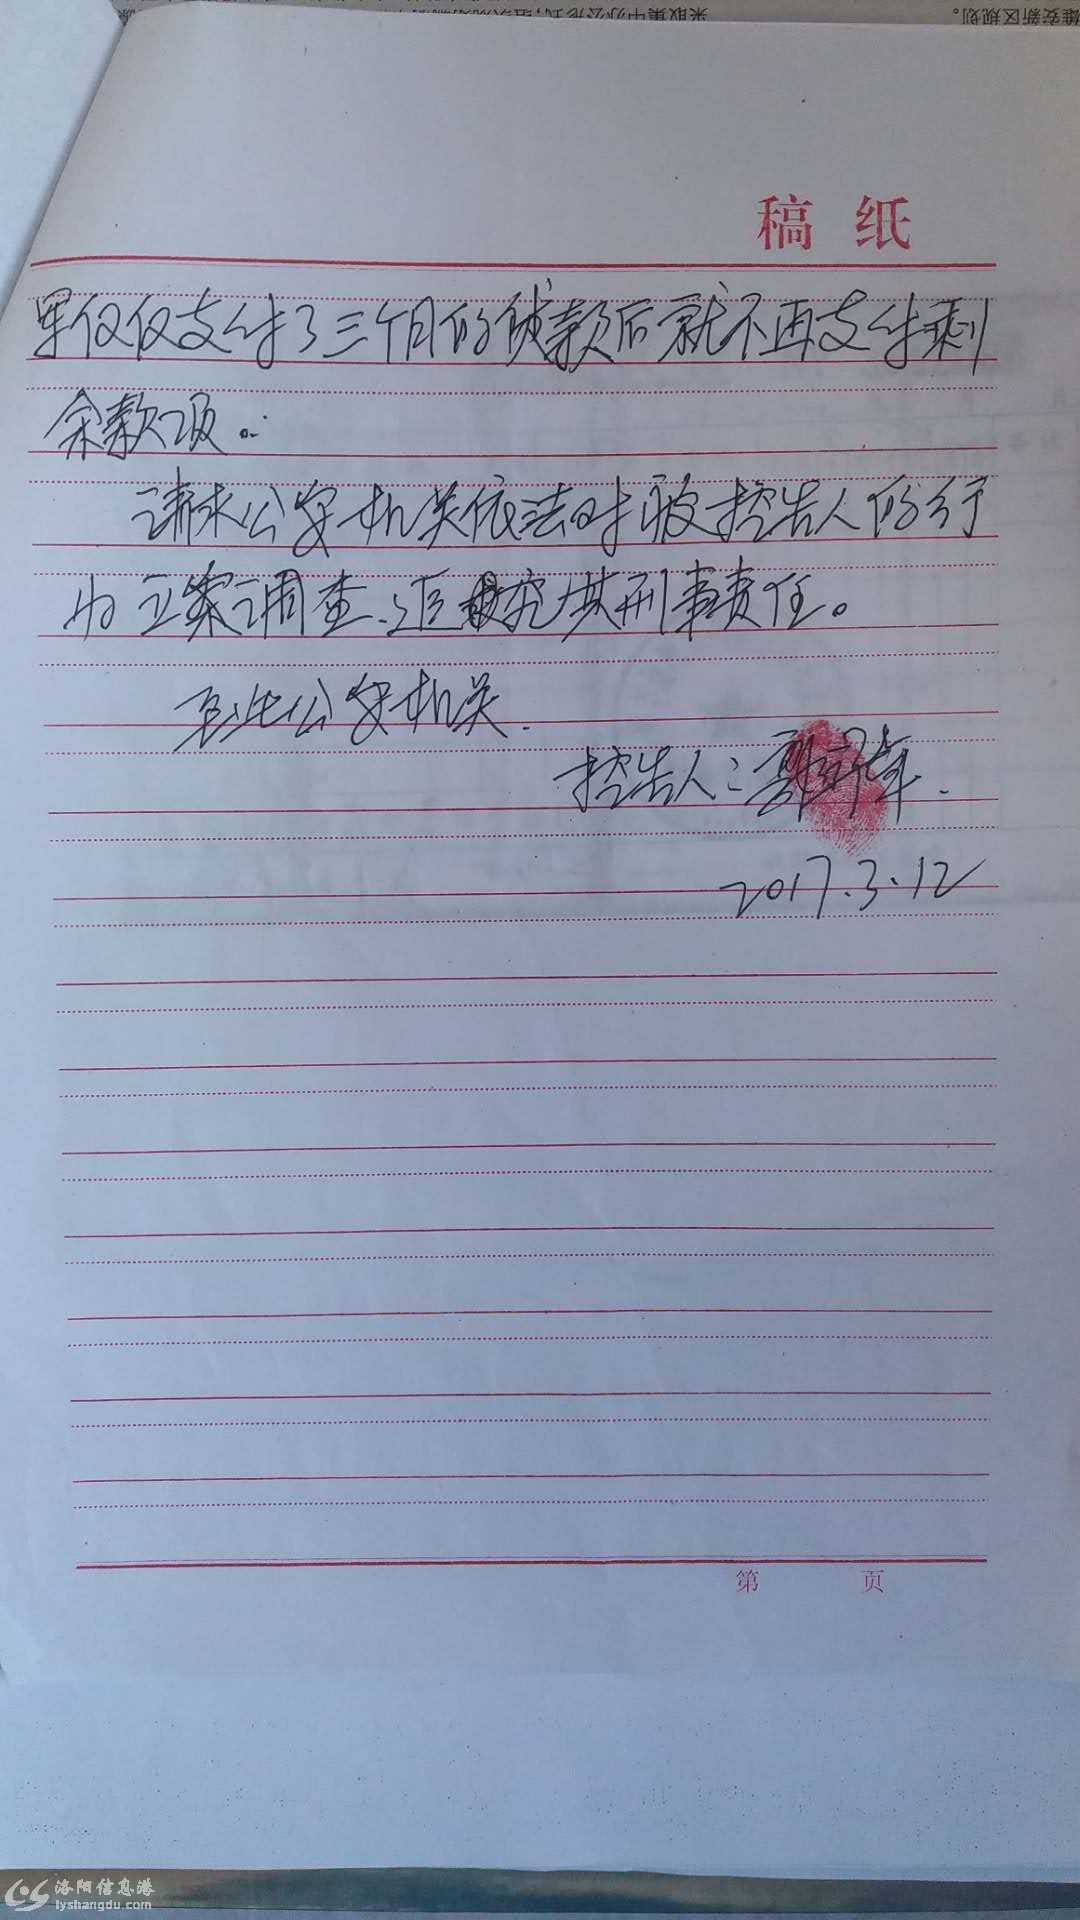 雄安新区规划。
采取集中办公形式,
稿 纸
果仅仅支付了三个月的贷款后就不再支付剩
余款项。
请求公安机关依法对被控告人的行
为立案调查、追究其刑事责任。
至此公安机关
控告人:郭
2017.3.12
第 页
洛阳信息港
lyshangdu.com